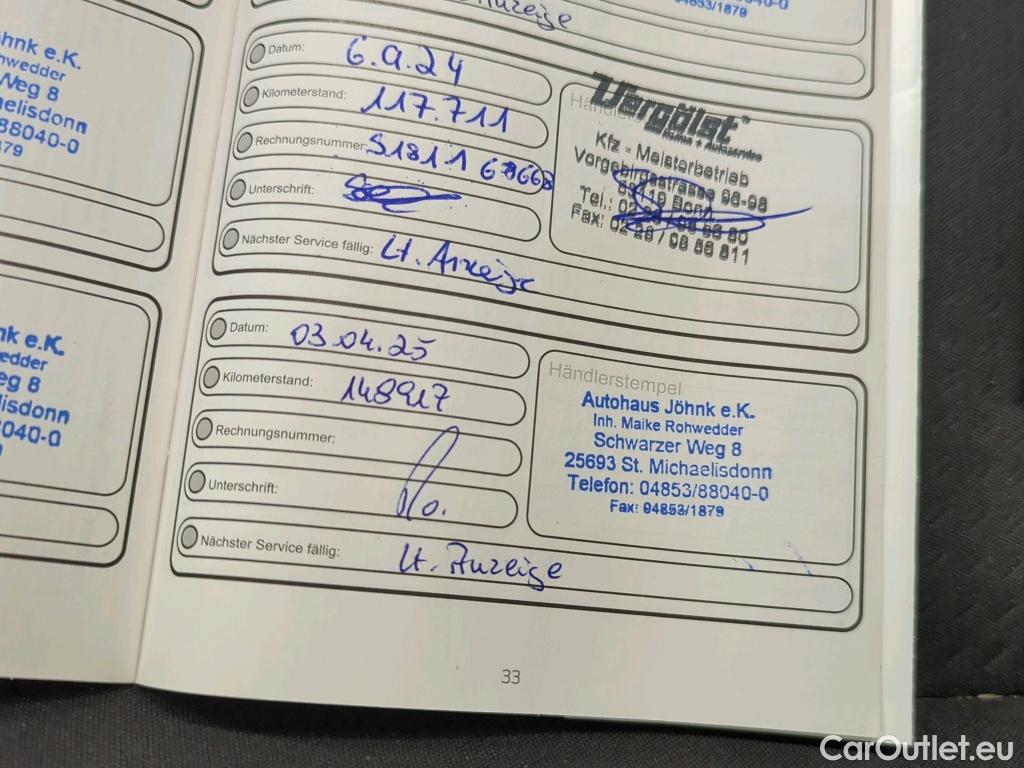 Anzeige
04853/1879
88040-0
öhnk e.K.
hwedder
Weg 8
aelisdonn
88040-0
Datum: 6.9.24
Kilometerstand: 117.711
Rechnungsnummer:
Unterschrift:
Nächster Service fällig: Lt. Anzeige
Vergölst
Reifen + Autoservice
Kfz - Meisterbetrieb
Vorgebirgsstrasse 96-98
53119 Bonn
Tel.:
Fax:
nk e.K.
wedder
eg 8
lisdonn
040-0
Datum: 03.04.25
Kilometerstand: 148917
Rechnungsnummer:
Unterschrift:
Nächster Service fällig: Lt. Anzeige
Händlerstempel
Autohaus Jöhnk e.K.
Inh. Maike Rohwedder
Schwarzer Weg 8
25693 St. Michaelisdonn
Telefon: 04853/88040-0
Fax: 04853/1879
33
CarOutlet.eu